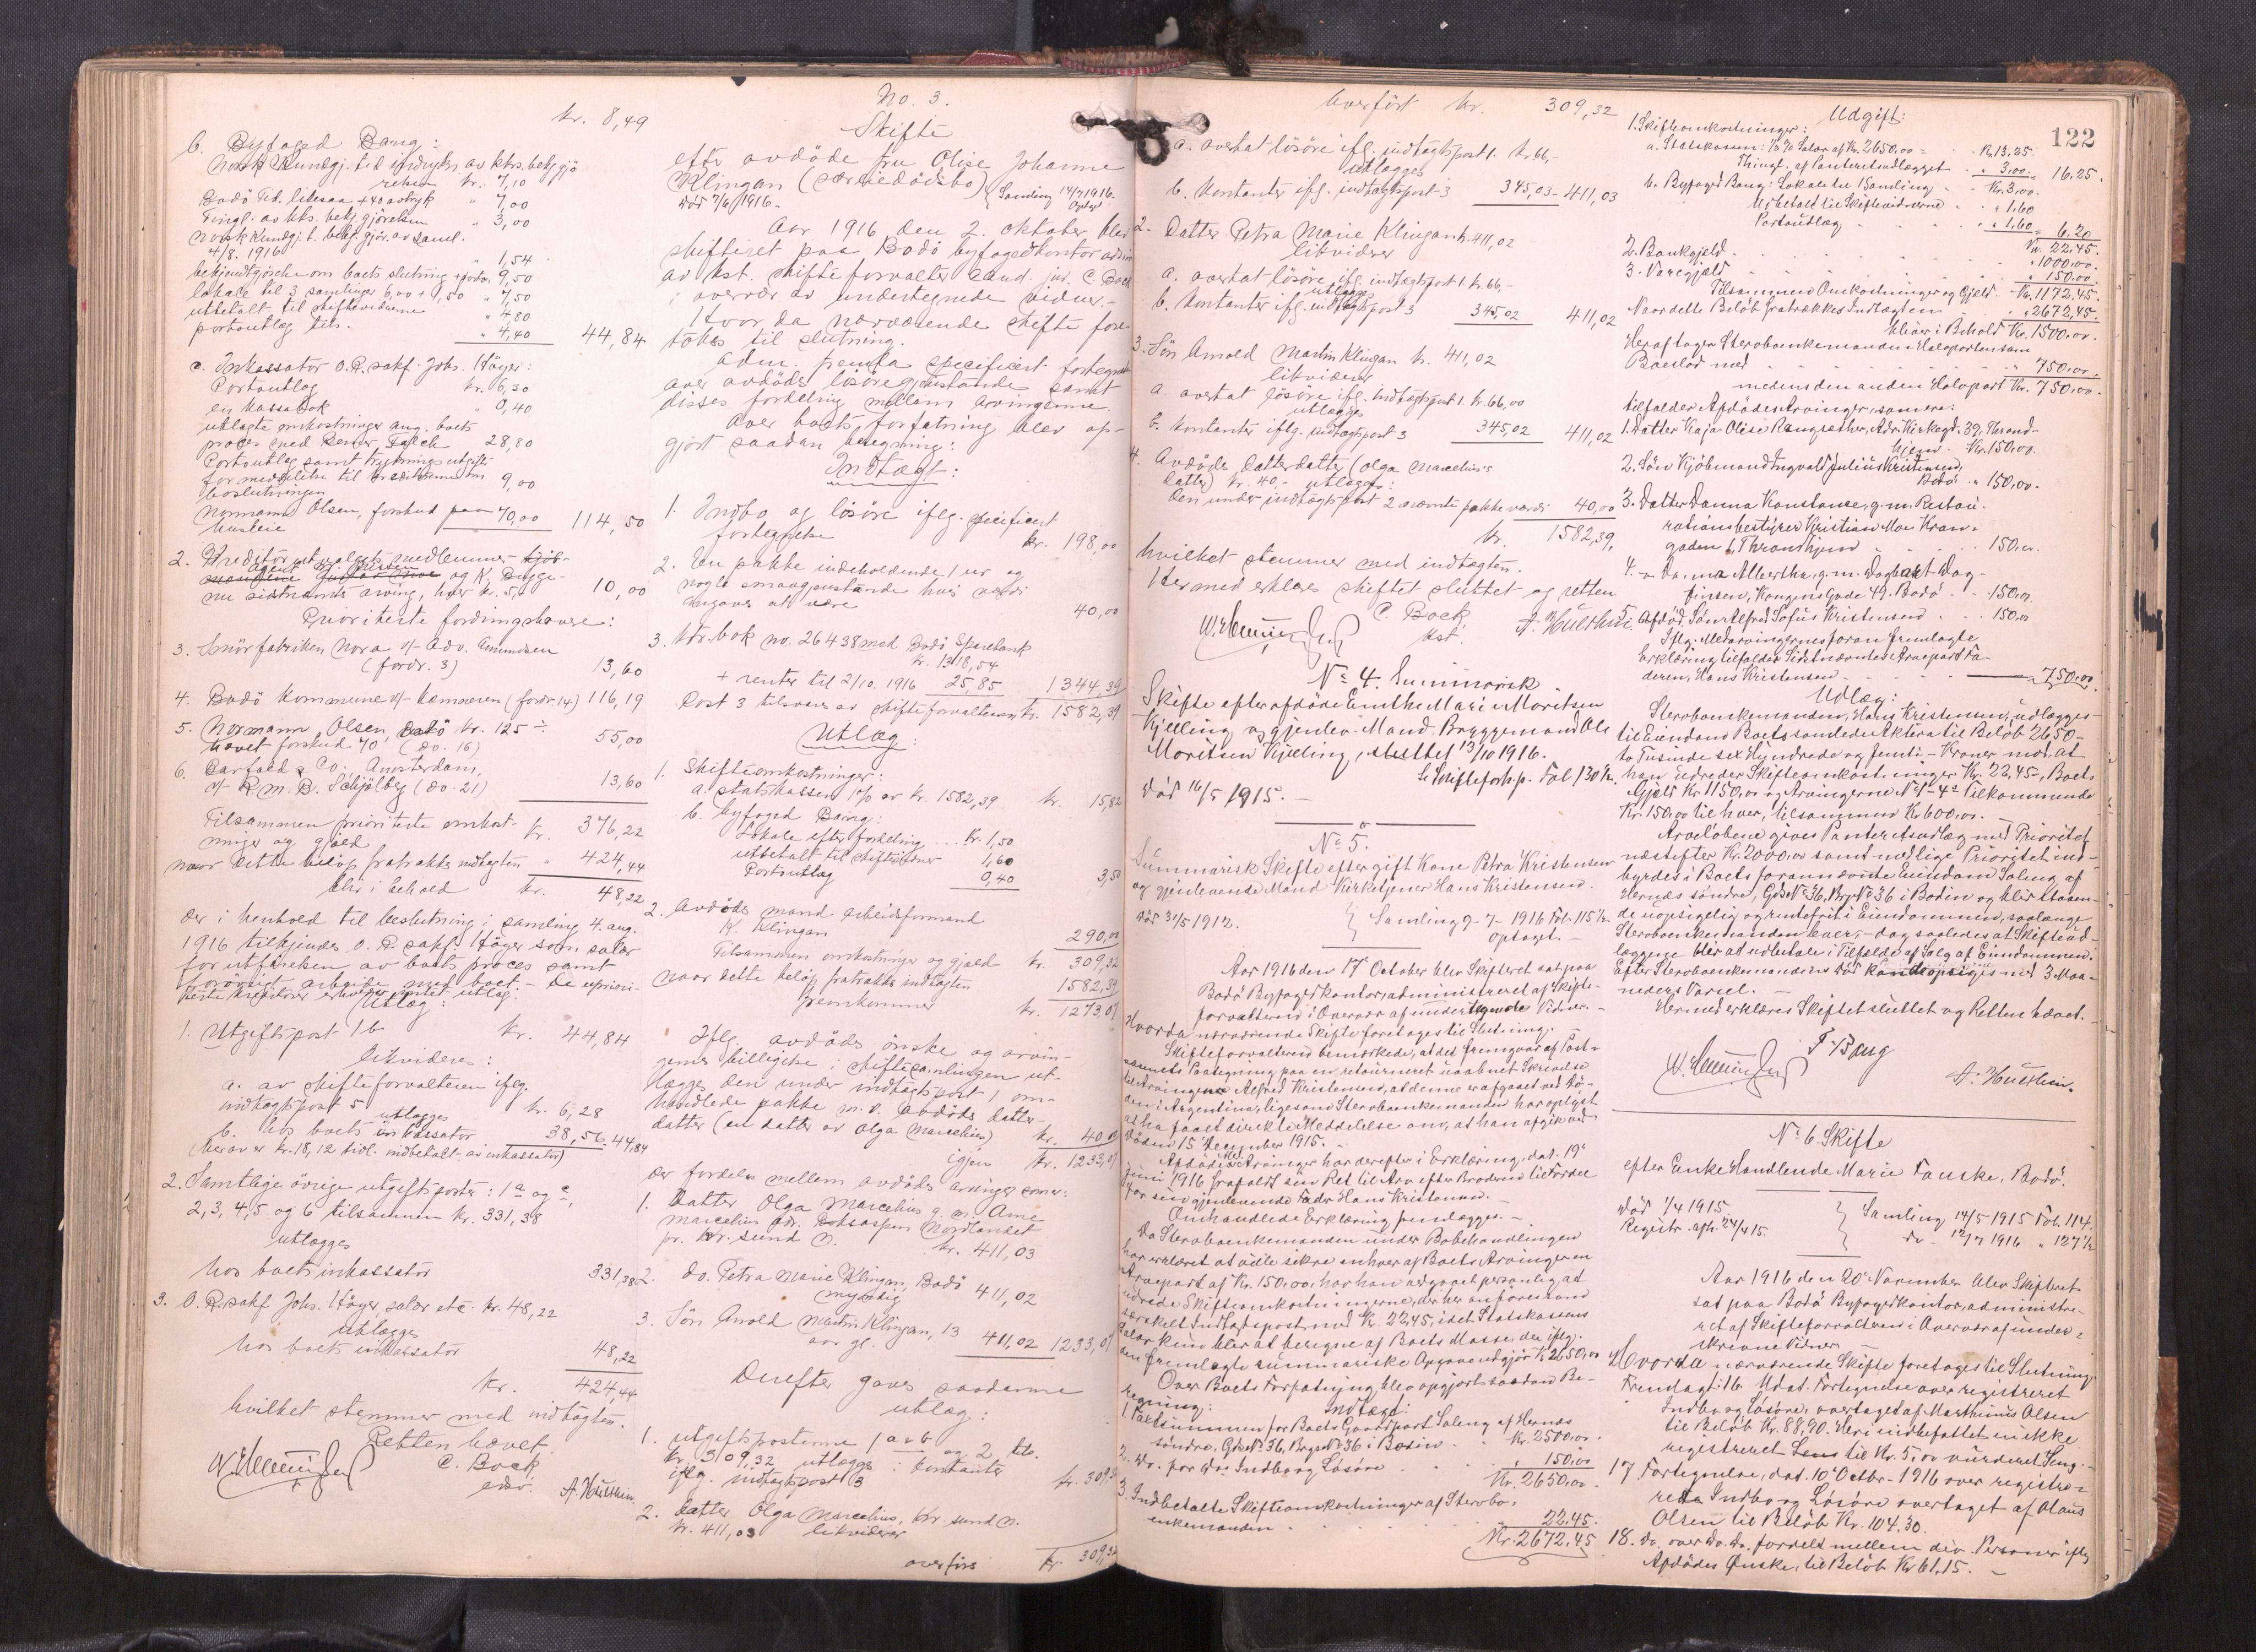 kr. 8,49
b. Byfoged Bang:
Norsk Kundgj. til indrykn. av kks. bekjgjö
relsen kr. 7,10
Bodö Tid. likesaa + 40 avtryk " 7,00
Tingl. av kks. bekj.gjörelsen " 3,00
Norsk Kundgj. t. bekj.gjör. av saml.
4/8. 1916 " 1,54
bekjendtgjörelse om boets slutning + porto 9,50
lokale til 3 samlinger 6,00 + 1,50 " 7,50
utbetalt til skiftevidnerne " 4,80
portoutlæg tils. " 4,40 44,84
c. Inkassator O. R. sakf. Johs. Höyer:
Portoutlæg kr. 6,30
en kassabok " 0,40
utlagte omkostninger ang. boets
proces med Falch 28,80
Portoutlæg samt trykningsutgift
for meddelelse til kreditorerne om
boslutningen 9,00
Normann Olsen, forskud paa
husleie 70,00 114,50
2. Kreditorutvalgets medlemmer
og K. Bygge-
ne sidstnævntes arving, hver kr. 5,- 10,00
Prioriterte fordringshavere:
3. Smörfabriken Nora v/ adv. Amundsen
(fordr. 3) 13,60
4. Bodö kommune v/ kæmneren (fordr. 14) 116,19
5. Normann Olsen, Bodö kr. 125 ÷
hævet forskud 70 (do. 16) 55,00
6. & Co. Amsterdam,
v/ R. M. B. Schjölberg (do. 21) 13,60
Tilsammen prioriterte omkost-
ninger og gjæld kr. 376,22
naar dette belöp fratrækkes indtægten " 424,44
blir i behold kr. 48,22
der i henhold til beslutning i samling 4. aug.
1916 tilkjendes O. R. sakf. Höyer som salær
for utförelsen av boets proces samt
forövrigt arbeide med boet. - De upriori-
terte kreditorer erholder intet utlæg.
Utlæg:
1. Utgiftspost 1 b kr. 44,84
likvideres:
a. av skifteforvalteren iflg.
indtægtspost 5 kr. 6,28
utlægges
b. hos boets inkassator 38,56 44,84
(herav er kr. 18,12 tidl. indbetalt av inkassator)
2. Samtlige övrige utgiftsposter: 1 a og c,
2, 3, 4, 5 og 6 tilsammen kr. 331,38
utlægges
hos boets inkassator 331,38
3. O. R. sakf. Johs. Höyer, salær etc. kr. 48,22
utlægges
hos boets inkassator 48,22
kr. 424,44
hvilket stemmer med indtægten.
Retten hævet.
C. Bock
edsv.
A. Hulthin.
No. 3.
Skifte
efter avdöde fru Olise Johanne
Klingan (særskiedödsbo)
död 7/6 1916. - { Samling 14/7 1916.
Optaget
Aar 1916 den 2. oktober blev
skifteret paa Bodö byfogedkontor adm.
av kst. skifteforvalter cand. jur. C. Bock
i overvær av undertegnede vidner. -
Hvor da nærværende skifte fore-
tokes til slutning.
Adm. fremla specificert fortegnelse
over avdödes lösöregjenstande samt
disses fordeling mellem arvingerne.
Over boets forfatning blev op-
gjort saadan beregning:
Indtægt:
1. Indbo og lösöre iflg. specificert
fortegnelse kr. 198,00
2. En pakke indeholdende 1 ur og
nogle smaagjenstande hvis værdi
angaves at være 40,00
3. Ktr.bok no. 26438 med Bodö Sparebank
kr. 1318,54
+ renter til 2/10. 1916 25,85 1344,39
Post 3 tilsvares av skifteforvalteren kr. 1582,39
Utlæg:
1. Skifteomkostninger:
a. statskassen 1% av kr. 1582,39 kr. 15,82
b. byfoged Bang:
Lokale efter fordeling . . . . kr. 1,50
utbetalt til skiftevidner 1,60
Portoutlæg 0,40 3,50
2. Avdödes mand arbeidsformand
K. Klingan 290,00
Tilsammen omkostninger og gjæld kr. 309,32
naar dette belöp fratrækkes indtægten 1582,39
fremkommer kr. 1273,07
Iflg. avdödes önske og arvin-
gernes billigelse i skiftesamlingen ut-
lægges den under indtægtspost 1 om-
handlede pakke m. v. avdödes datter-
datter (en datter av Olga Marcelius) kr. 40,00
igjen kr. 1233,07
der fordeles mellem avdödes arvinger som er:
1. Datter Olga Marcelius g. m. Arne
Marcelius adr. Nordlandet
pr. Kr.sund N. kr. 411,03
2. do. Petra Marie Klingan, Bodö
myndig 411,02
3. Sön Arnold Martin Klingan, 13
aar gl. 411,02 1233,07
Derefter gaves saadanne
utlæg:
1. Utgiftsposterne 1 a & b og 2 tils.
kr. 309,32 utlægges i kontanter
iflg. indtægtspost 3 kr. 309,32
2. Datter Olga Marcelius, Kr.sund N.
kr. 411,03 likviderer
overföres kr. 309,32
Overfört kr. 309,32
a. overtat lösöre iflg. indtægtspost 1. kr. 66,-
utlægges
b. Kontanter iflg. indtægtspost 3 345,03 - 411,03
2. Datter Petra Marie Klingan kr. 411,02
likviderer
a. overtat lösöre iflg. indtægtspost 1 kr. 66,-
utlægges
b. Kontanter iflg. indtægtspost 3 345,02 411,02
3. Sön Arnold Martin Klingan kr. 411,02
likviderer
a. overtat lösöre iflg. indtægtspost 1. kr. 66,00
utlægges
b. Kontanter iflg. indtægtspost 3 345,02 411,02
4. Avdödes datterdatter (Olga Marcelius's
datter) kr. 40,- utlægges:
Den under indtægtspost 2 nævnte pakke værdi 40,00
kr. 1582,39,
hvilket stemmer med indtægten.
Hermed erklæres skiftet sluttet og retten
C. Bock
kst.
A. Hulthin.
No 4. Summarisk
Skifte efter afdöde Emthe Mari Moritsen
Kjelling og gjenlev. Mand Byggemand Ole
Moritsen Kjelling, sluttet 13/10 1916.
Se Skifteforh.p. Fol 130 1/2.
död 16/5 1915. -
No 5.
Summarisk Skifte efter gift Kone Petra Kristensen
og gjenlevende Mand Kirketjener Hans Kristensen.
död 31/5 1912. } Samling 7-7-1916 Fol. 115 1/2
optaget. -
Aar 1916 den 17 October blev Skifteret sat paa
Bodö Byfogedkontor, administreret af Skifte-
forvalteren i Overvær af undertegnede Vidner. -
Hvorda nærværende Skifte foretages til Slutning.
Skifteforvalteren bemærkede, at det fremgaar af Post-
væsnets Paategning paa en returneret uaabnet Skrivelse
til Arvingen Alfred Kristensen, at denne er afgaaet ved Dö-
den i Argentina, ligesom Sterboenkemanden har oplyst
at ha faaet direkte Meddelelse om, at han afgik ved
Döden 15 December 1915. -
Afdödes Med-Arvinger har derefter i Erklæring, dat. 19'
Juni 1916 frafaldt sin Ret til Arv efter Broderen til Fordel
for sin gjenlevende Fader Hans Kristensen. -
Omhandlede Erklæring fremlægges. -
Da Sterboenkemanden under Bobehandlingen
har erklæret at ville sikre enhver af Boets Arvinger en
Arvepart af Kr. 150,00, har han udgaaet personlig at
udrede Skifteomkostningerne, der her anföres som
særskilt Indtægtspost med Kr. 22,45, idet Statskassens
Salær kun blir at beregne af Boets Masse, der iflg.
den fremlagte summariske Opgave udgjör Kr 2650,00
Over Boets Forfatning blev opgjort saadan Be-
regning:
Indtægt:
1. Taxtsummen for Boets Gaardpart Soleng af Hernæs
söndre, Gds No 36, Brgs No 36 i Bodin . . Kr. 2500,00.
2. Do. for do. Indbo og Lösöre . . 150,00
Kr. 2650,00.
3. Indbetalte Skifteomkostninger af Sterbo-
enkemanden . . . . . 22.45.
Kr. 2672,45
122
Udgift:
1. Skifteomkostninger:
a. Statskassen: 1/2 % Salær af Kr. 2650,00 = . . Kr. 13,25.
Thingl. af Panteretsudlægget . . " 3,00 = 16.25.
b. Byfoged Bang: Lokale til 1 Samling . . Kr. 3,00.
Udbetalt til Skiftevidnerne . . " 1,60
Portoudlæg . . " 1,60 = 6.20
Kr. 22.45.
2. Bankgjæld . . . . . " 1000.00.
3. Varegjæld . . . . . " 150,00.
Tilsammen Omkostninger og Gjæld . . Kr. 1172,45.
Naar dette Belöb fratrækkes Indtægten . . " 2672,45.
bliver i Behold Kr. 1500,00.
Heraf tager Sterboenkemanden Halvparten som
Boeslod med . . . . . " 750,00.
medens den anden Halvpart Kr. 750,00.
tilfalder Afdödes Arvinger, som ere:
1. Datter Kaja Olise Rangsæther, Adr. Kirkegd. 39, Thrond-
hjem . Kr. 150,00.
2. Sön Kjöbmand Ingvald Julius Kristensen,
Bodö . " 150,00.
3. Datter Danna Konstanse, g. m. Restau-
rationsbestyrer Kristian Moe Kron-
gaden 6, Throndhjem . . . 150,00.
4. - Do. Alberthe, g. m. Dagbert Dag-
finsen, Kongens Gade 49, Bodö . . 150,00
5. Afdöd. Sön Alfred Sofus Kristensen . . 150,00
Iflg. Medarvingernes foran fremlagte
Erklæring tilfalder Sidstnævntes Arvepart Fa-
deren, Hans Kristensen . . . . 750,00.
Udlæg:
Sterboenkemanden, Hans Kristensen, udlægges
til Eiendom Boets samlede Aktiva til Belöb 2650 -
to Tusinde sex Hundrede og femti - Kroner mod at
han udreder Skifteomkostninger Kr. 22,45, Boets
Gjæld Kr. 1150,00 og Arvingerne No 1 - 4 tilkommende
Kr. 150,00 til hver, tilsammen Kr. 600,00. -
Arvelöbene gives Panteretsudlæg med Prioritet
næstefter Kr. 2000,00 samt med lige Prioritet ind-
byrdes i Boets forannævnte Eiendom Soleng af
Hernæs söndre, Gds No 36, Brgs No 36 i Bodin og blir staaen-
de uopsigelig og rentefrit i Eiendommen, saalænge
Sterboenkemanden lever, - dog saaledes at Skifteud-
læggene blir at udbetale i Tilfælde af Salg af Eiendommen.
Efter Sterboenkemandens Död kan de opsiges med 3 Maa-
neders Varsel. -
Hermed erklæres Skiftet sluttet og Retten hævet.
F. Bang
A. Hulthin.
No 6. Skifte
efter Enke Handlende Marie Fauske, Bodö.
död 1/4 1915.
Registr. afh. 24/4 15. } Samling 14/5 1915 Fol. 114.
do - 12/7 1916 " 127 1/2
Aar 1916 den 20' November blev Skifteret
sat paa Bodö Byfogedkontor, administre-
ret af Skifteforvalteren i Overvær af under-
skrevne Vidner. -
Hvorda nærværende Skifte foretages til Slutning.
Fremlagt: 16. Udat. Fortegnelse over registreret
Indbo og Lösöre, overtaget af Marthinus Olsen
til Belöb Kr. 88,90. Heri indbefattet en ikke
registreret Seng til Kr. 5,00 vurderet Seng. -
17. Fortegnelse, dat. 10' Octbr. 1916 over registre-
rede Indbo og Lösöre overtaget af Olaus
Olsen til Belöb Kr. 104.30.
18. Do. over do. do. fordelt mellem div. Personer iflg.
Afdödes Önske, til Belöb Kr 61,15. -